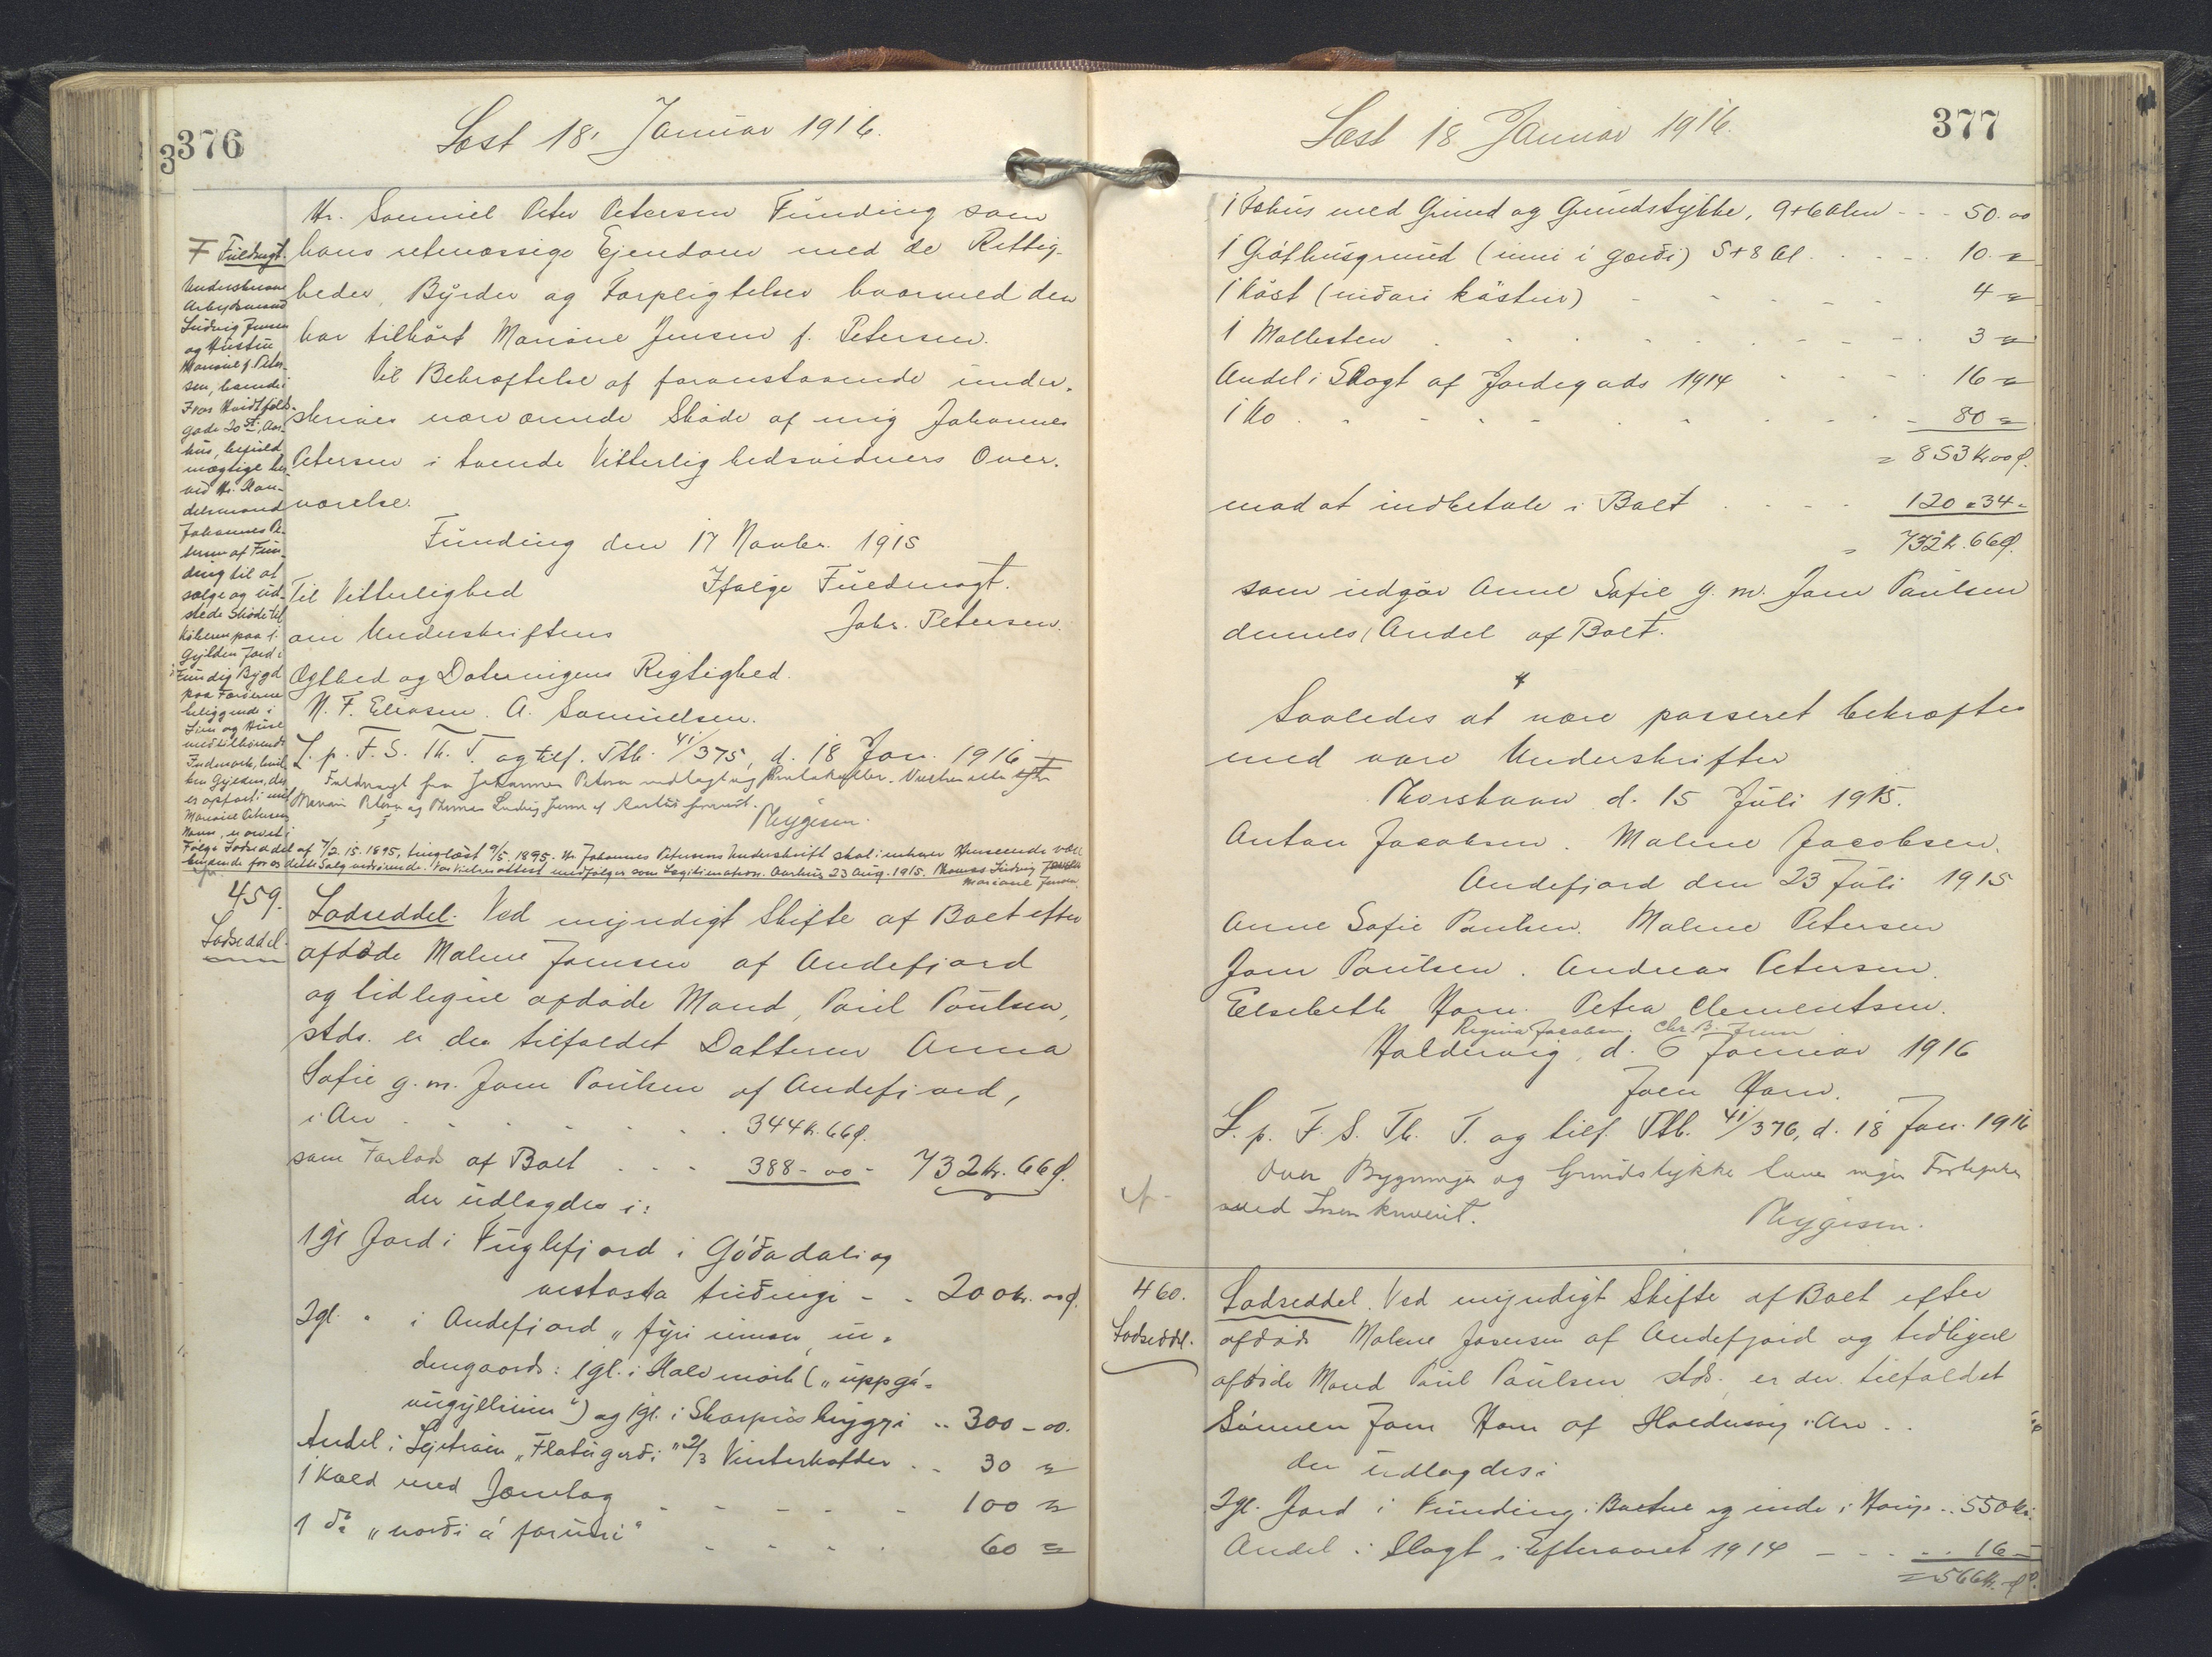 376
Læst 18' Januar 1916.
Hr. Samuel Peter Petersen Funding som
hans retmæssige Ejendom med de Rettig-
heder, Byrder og Forpligtelser hvormed den
har tilhört Mariane Jensen f. Petersen.
Til Bekræftelse af foranstaaende under-
skrives nærværende Sköde af mig Johannes
Petersen i tvende Vitterlighedsvidners Over-
værelse.
Funding den 17 Novbr. 1915
Til Vitterlighed
Ifölge Fuldmagt.
om Underskriftens
Johs. Petersen.
Ægthed og Dateringens Rigtighed.
N. F. Eliasen. A. Samuelsen.
L. p. F. S. Th. T. og tilf. Ptb. 41/375, d. 18 Jan. 1916
Fuldmagt fra Johannes Petersen
Thygesen.
F Fuldmagt.
Undertegnede
Arbejdsmand
Ludvig Jensen
og Hustru
Mariane f. Peter-
sen, boende i
Ivar Hvidtfeldts-
gade 20 St, Aar-
hus, befuld-
mægtige her-
ved Hr. Han-
delsmand
Johannes Pe-
tersen af Fun-
ding til at
sælge og ud-
stede Sköde til
Köberen paa 1
Gylden Jord i
Funding Bygd
paa Færöerne
beliggende i
med tilhörende
Indmark, hvil-
ken Gylden, der
er opfört i mit
Mariane Petersens
Navn, er arvet i
Fölge Lodseddel af 7/2. 15. 1895, tinglæst 9/5. 1895. Hr. Johannes Petersens Underskrift skal i enhver Henseende være
bindende for os dette Salg vedrörende. Vor Vielsesattest medfölger som Legitimation. Aarhus 23 Aug. 1915. Thomas Ludvig Jensen
Mariane Jensen.
459.
Lodseddel.
Lodseddel. Ved myndigt Skifte af Boet efter
afdöde Malene Joensen af Andefjord
og tidligere afdöde Mand, Poul Poulsen,
stds. er der tilfaldet Datteren Anna
Sofie g. m. Joen Poulsen af Andefjord,
i Arv . . . . . . 344 Kr. 66 Ø.
som Forlod af Boet . . . 388 - 00 - 732 Kr. 66 Ø.
der udlagdes i:
1 gl Jord i Fuglefjord i Góðadali og
vestasta triðingi - - 200 kr. 00 Ø.
2 gl. " i Andefjord "fyri innan", in-
dengaards: 1 gl. i Halvmörk ("uppgá-
") og 1 gl. i Skarpuis -- 300 - 00.
Andel i Lejetraven "Flatugerði" 2/3 Vinterkofter . . 30 "
1 Kæld med Jomlag - - - - 100 "
1 do "norði á forunni" - - - - 60 "
377
Læst 18 Januar 1916.
1 Fæhus med Grund og Grundstykke, 9+6 Alen - - - 50. 00
1 Gróthusgrund (inni i gerði) 5+8 Al . . . . 10. "
1 Kást (niðari kástur) - - - - - 4 "
1 Møllesten . . . . . . - - 3 "
Andel i Slagt af Jordegods 1914 - - - - 16 "
1 Ko . - - - - . . - 80 "
= 853 Kr 00 Ø.
mod at indbetale i Boet . . . . 120 " 34 "
= 732 Kr. 66 Ø.
som udgör Anne Sofie g. m. Joen Poulsen
dennes Andel af Boet.
Saaledes at være passeret bekræftes
med vore Underskrifter
Thorshavn d. 15 Juli 1915.
Anton Jacobsen. Malene Jacobsen.
Andefjord den 23 Juli 1915
Anne Sofie Poulsen. Malene Petersen
Joen Poulsen. Andreas Petersen.
Elsebeth Ham. Petra Clementsen.
Regina Jacobsen. Chr. B. Jensen
Haldervig, d. 6 Januar 1916
Joen Ham.
L. p. F. S. Th. T. og tilf. Ptb. 41/376, d. 18 Jan. 1916
Over Bygninger og Grundstykke haves ingen
Thygesen.
460.
Lodseddel.
Lodseddel. Ved myndigt Skifte af Boet efter
afdöde Malene Joensen af Andefjord og tidligere
afdöde Mand Poul Poulsen stds. er der tilfaldet
Sönnen Joen Ham af Haldervig i Arv . .
der udlagdes i
2 gl. Jord i Funding i Böene og inde i Hauge .. 550 Kr.
Andel i Slagt i Efteraaret 1914 - - - . . 16 -
= 566 Kr. Ø.